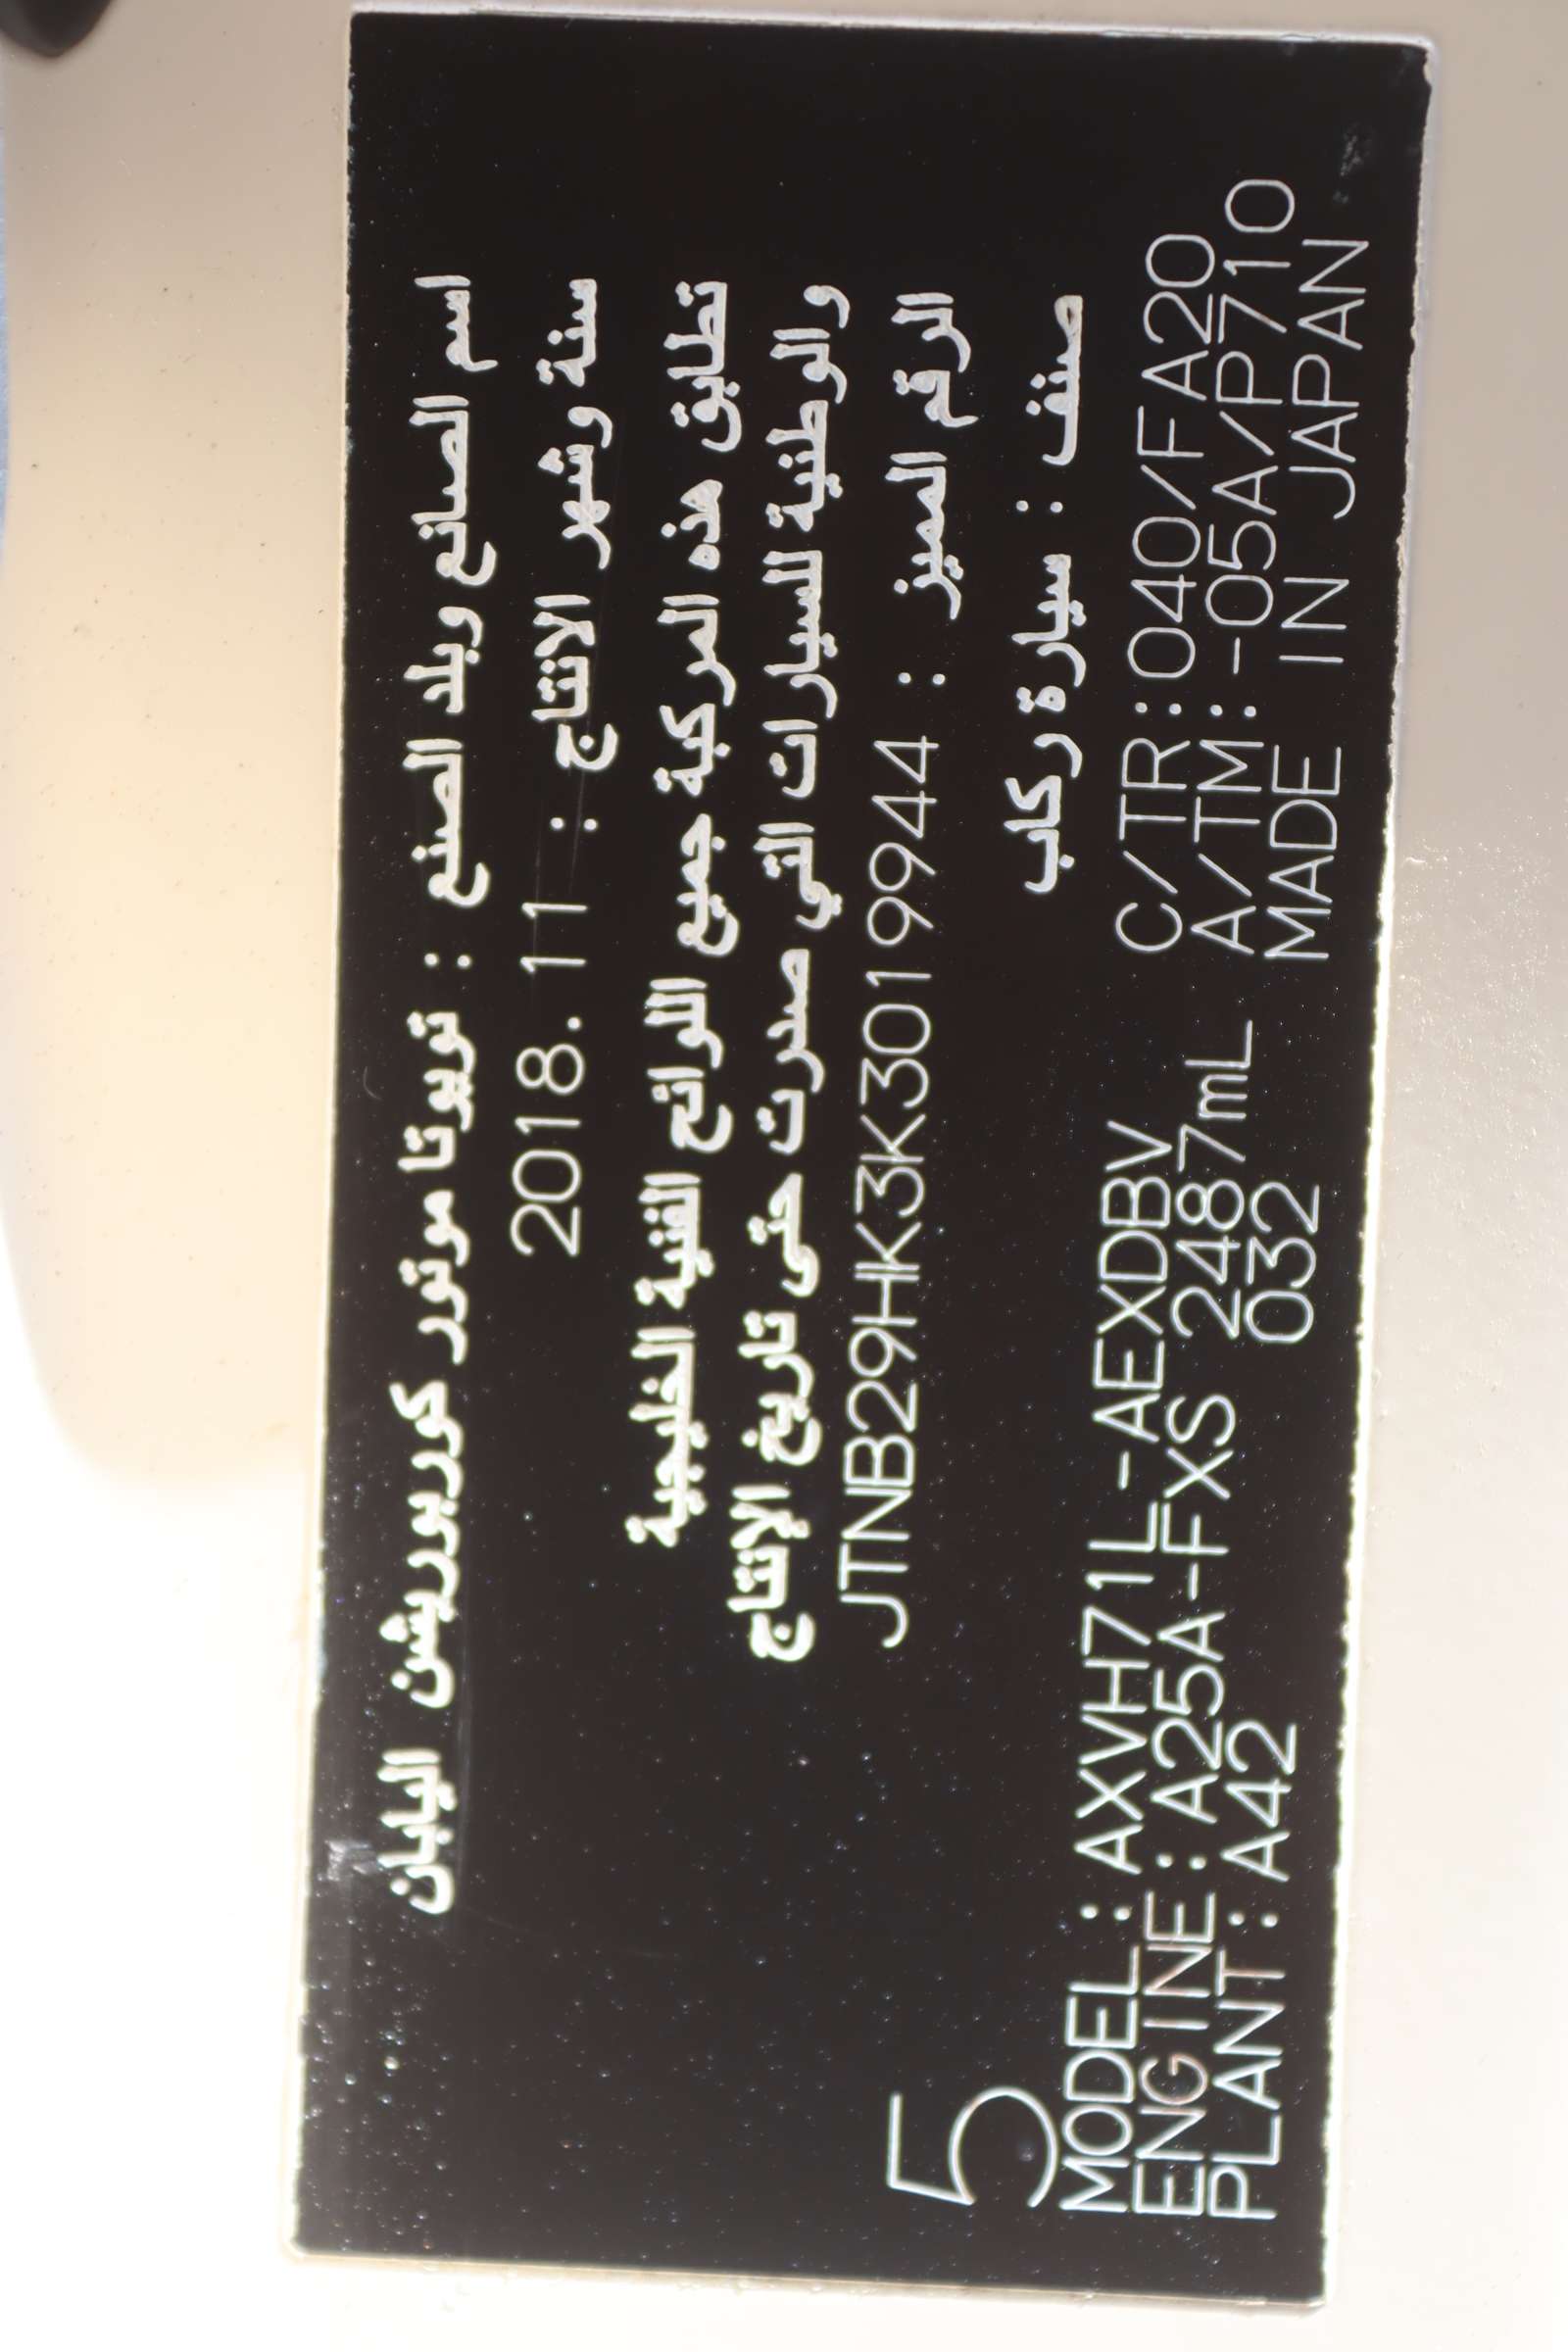 اسم الصانع وبلد الصنع : تويوتا موتور كوربوريشن اليابان
سنة وشهر الانتاج : 2018.11
تطابق هذه المركبة جميع اللوائح الفنية الخليجية
والوطنية للسيارات التي صدرت حتى تاريخ الإنتاج
الرقم المميز : JTNB29HK3K3019944
صنف : سيارة ركاب
5
MODEL:AXVH71L-AEXDBV C/TR:040/FA20
ENGINE:A25A-FXS 2487mL A/TM:-05A/P710
PLANT:A42 032 MADE IN JAPAN